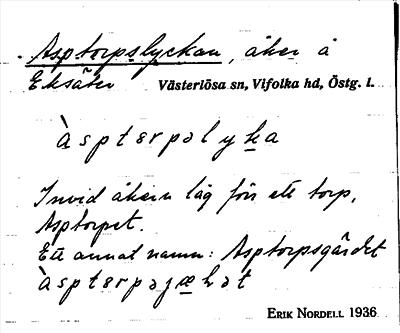 Asptorpslyckan, åker å
Eksäter Västerlösa sn, Vifolka hd, Östg. l.
àsptɵrpəlyka
Invid åkern låg förr ett torp,
Asptorpet.
Ett annat namn: Asptorpsgärdet